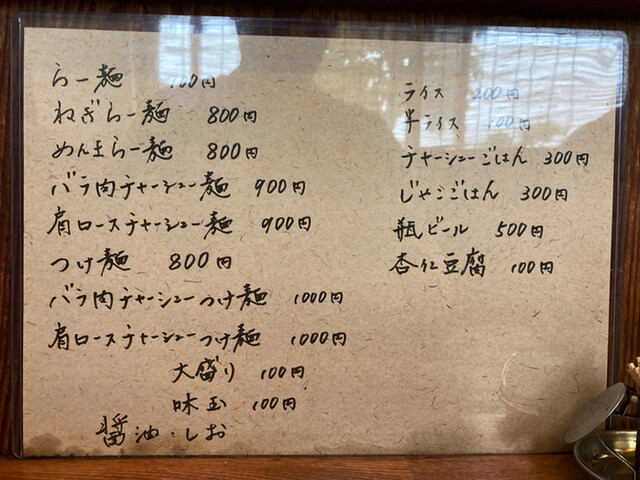 らー麺 700円
ねぎらー麺 800円
めんまらー麺 800円
バラ肉チャーシュー麺 900円
肩ロースチャーシュー麺 900円
つけ麺 800円
バラ肉チャーシューつけ麺 1000円
肩ロースチャーシューつけ麺 1000円
大盛り 100円
味玉 100円
醤油・しお
ライス 200円
半ライス 100円
チャーシューごはん 300円
じゃこごはん 300円
瓶ビール 500円
杏仁豆腐 100円